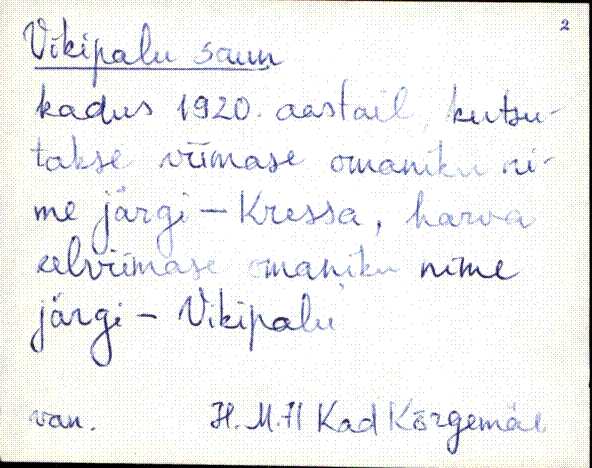 2
Vikipalu saun
kadus 1920. aastail, kutsu-
takse viimase omaniku ni-
me järgi – Kressa, harva
eelviimase omaniku nime
järgi – Vikipalu
van. H. M. Kad Kõrgemäe